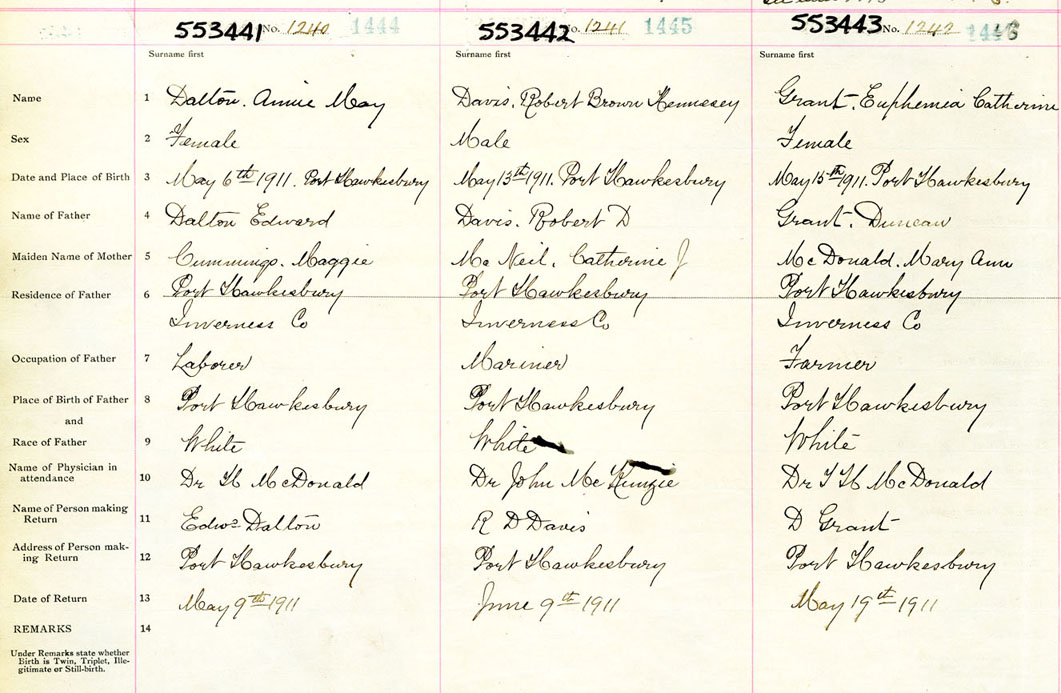 553441 No. 1240 1444 553442 No. 1241 1445 553443 No. 1242 1446
Surname first Surname first Surname first
Name 1 Dalton. Annie May Davis. Robert Brown Hennessey Grant. Euphemia Catherine
Sex 2 Female Male Female
Date and Place of Birth 3 May 6th 1911. Port Hawkesbury May 13th 1911. Port Hawkesbury May 15th 1911. Port Hawkesbury
Name of Father 4 Dalton Edward Davis. Robert D Grant. Duncan
Maiden Name of Mother 5 Cummings. Maggie Mc Neil. Catherine J Mc Donald. Mary Ann
Residence of Father 6 Port Hawkesbury Port Hawkesbury Port Hawkesbury
Inverness Co Inverness Co Inverness Co
Occupation of Father 7 Laborer Mariner Farmer
Place of Birth of Father 8 Port Hawkesbury Port Hawkesbury Port Hawkesbury
and
Race of Father 9 White White White
Name of Physician in
attendance 10 Dr H McDonald Dr John Mc Kinzie Dr J H McDonald
Name of Person making
Return 11 Edw. Dalton R D Davis D Grant
Address of Person mak-
ing Return 12 Port Hawkesbury Port Hawkesbury Port Hawkesbury
Date of Return 13 May 9th 1911 June 9th 1911 May 19th 1911
REMARKS 14
Under Remarks state whether
Birth is Twin, Triplet, Ille-
gitimate or Still-birth.